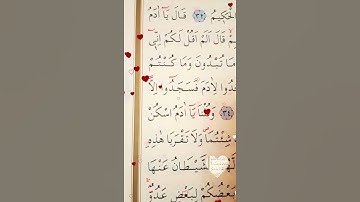 الْحَكِيمُ ﴿٣٢﴾ قَالَ يَا اٰدَمُ
قَالَ اَلَمْ اَقُلْ لَكُمْ اِنّٖى
مَا تُبْدُونَ وَمَا كُنْتُمْ
جُدُوا لِاٰدَمَ فَسَجَدُوا اِلَّا
﴿٣٤﴾ وَقُلْنَا يَا اٰدَمُ اسْكُنْ
شِئْتُمَا وَلَا تَقْرَبَا هٰذِهِ
الشَّيْطَانُ عَنْهَا
بَعْضُكُمْ لِبَعْضٍ عَدُوٌّ